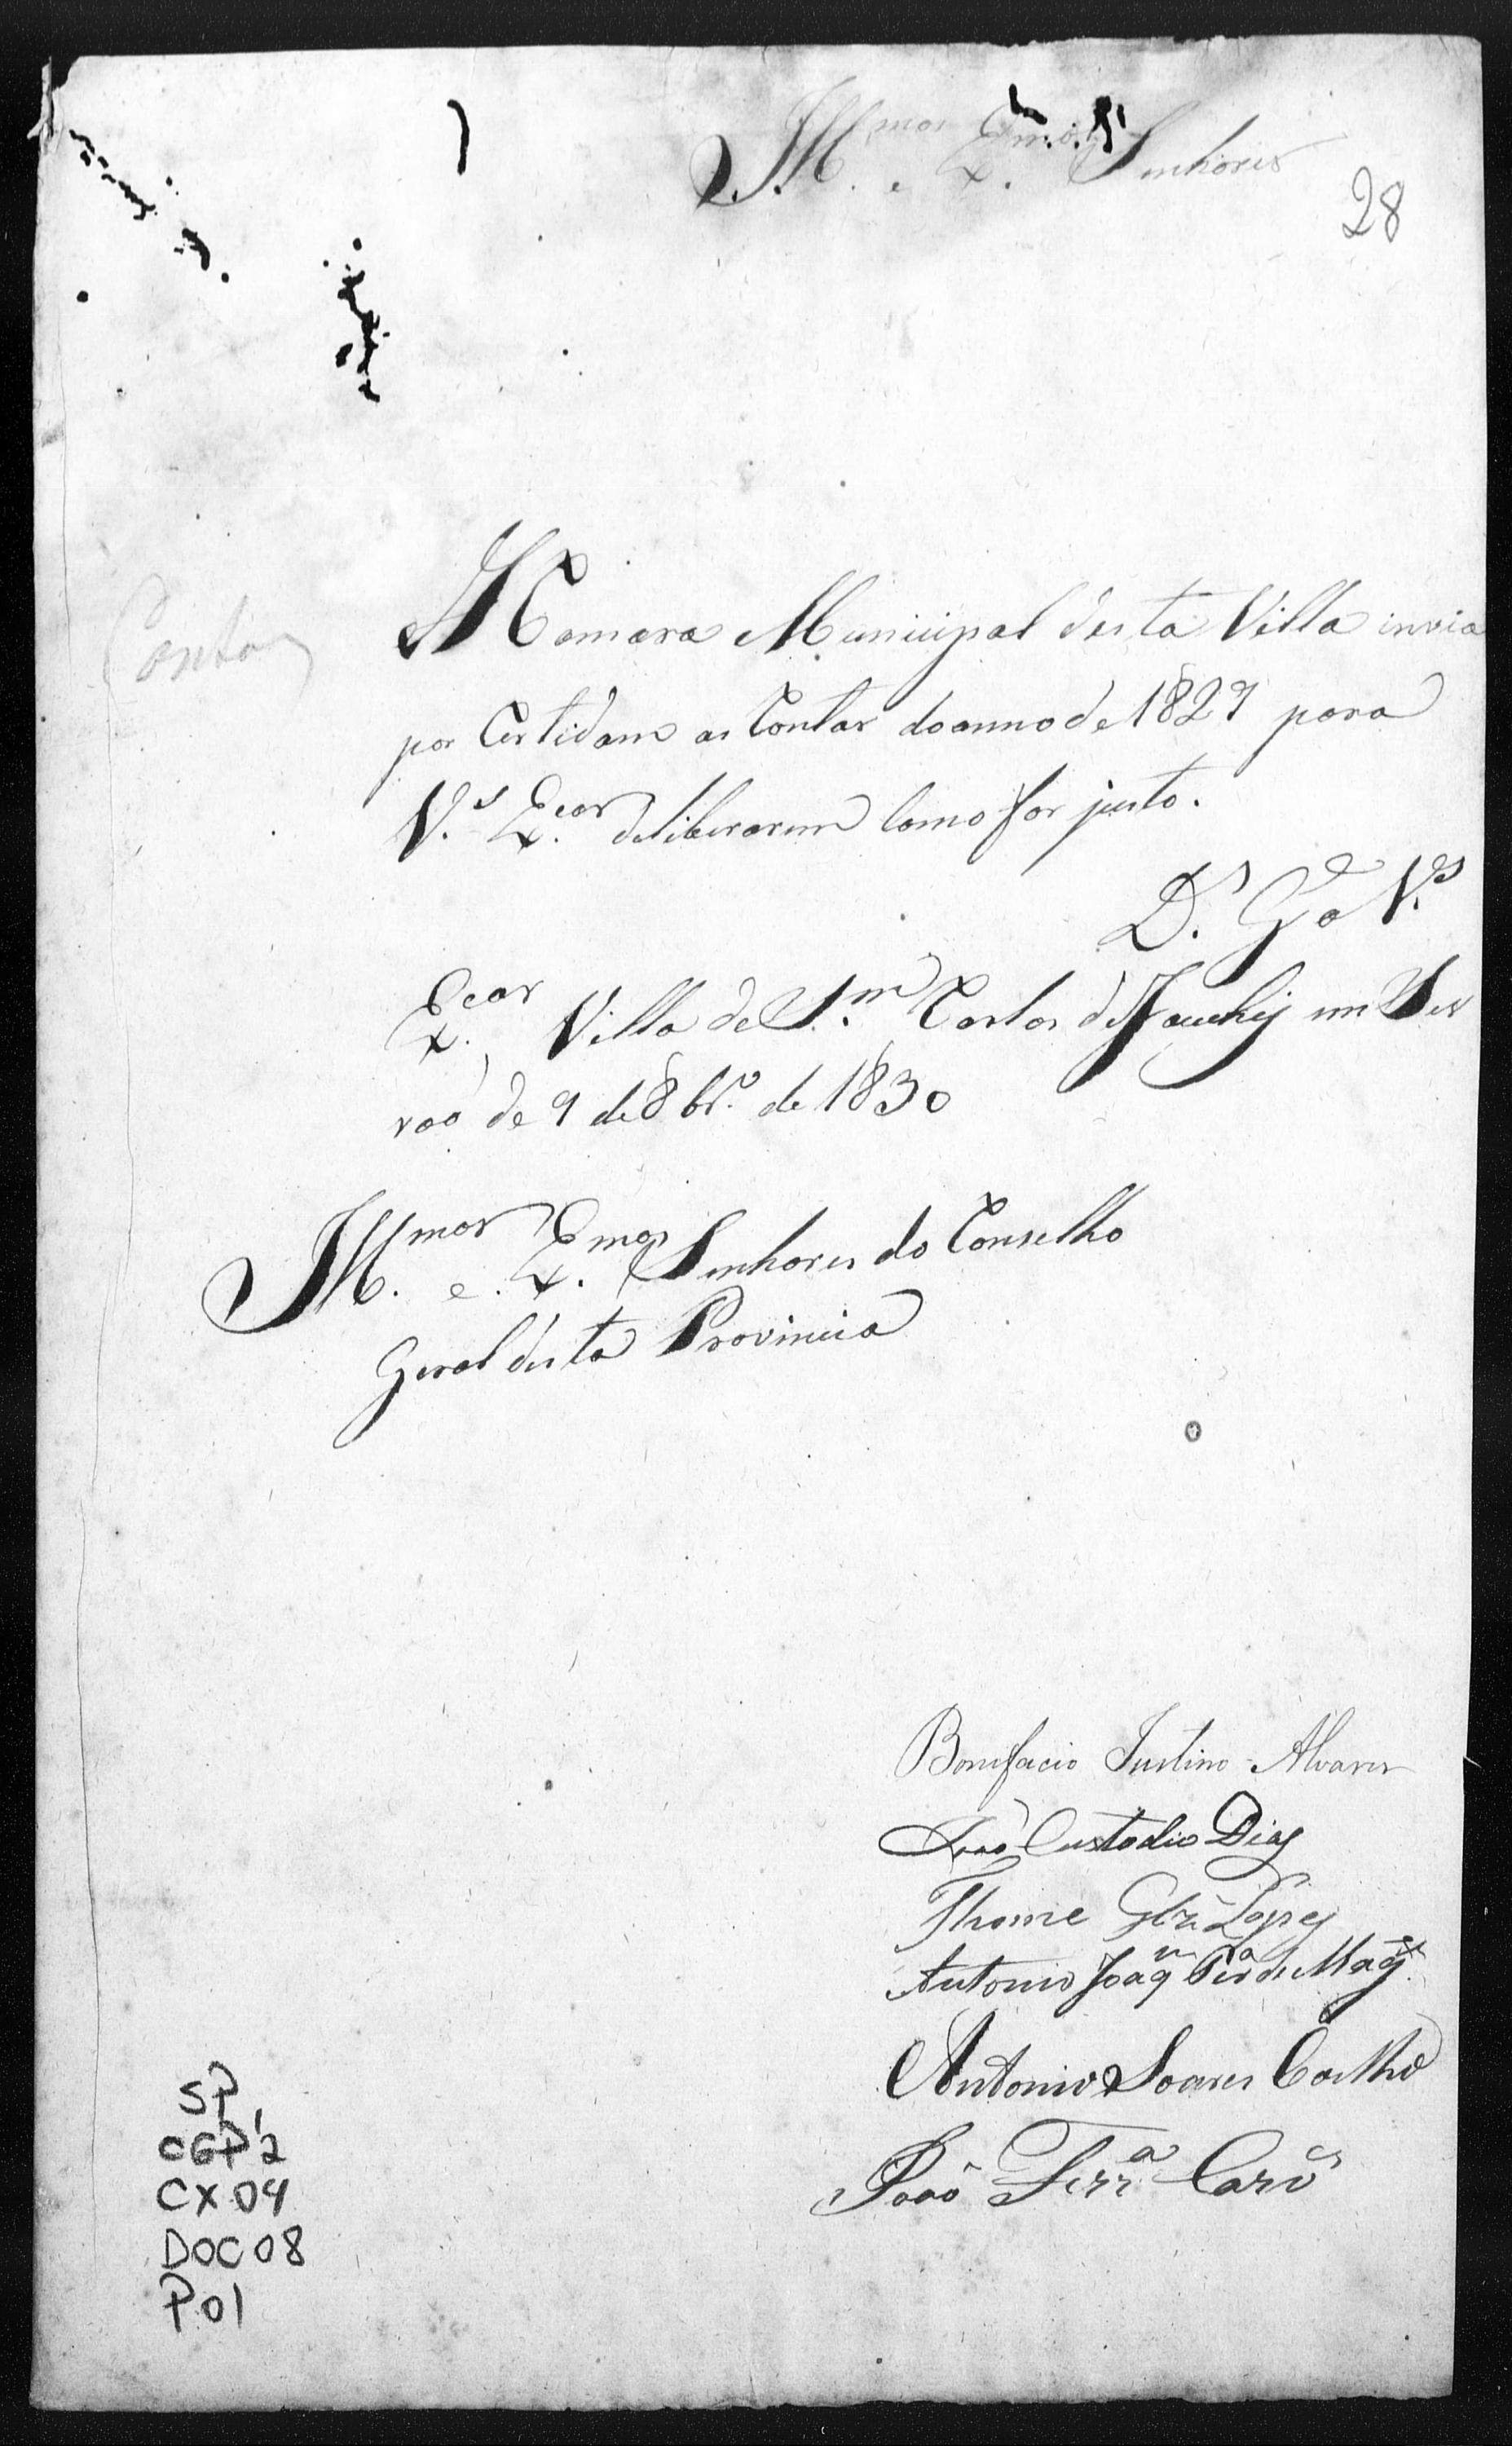 Ill.mos e Ex.mos Senhores
28
Contas
A Camara Municipal desta Villa invia
por Certidam as Contas do anno de 1829 para
V.s Ex.cas deliberarem como for justo.
D.s G.e a V.s
Ex.cas Villa de S.m Carlos de Jacuhy em Ver
eaó de 9 de 8br.o de 1830
Ill.mos e Ex.mos Senhores do Conselho
Geral desta Provincia
Bonifacio Justino Alvares
João Custodio Dias
Thome Glz Lopes
Antonio Joaq.m de Mag.es
Antonio Soares Coelho
João Ferr.a Card.o
SP
CGP'2
CX 04
DOC 08
P.01